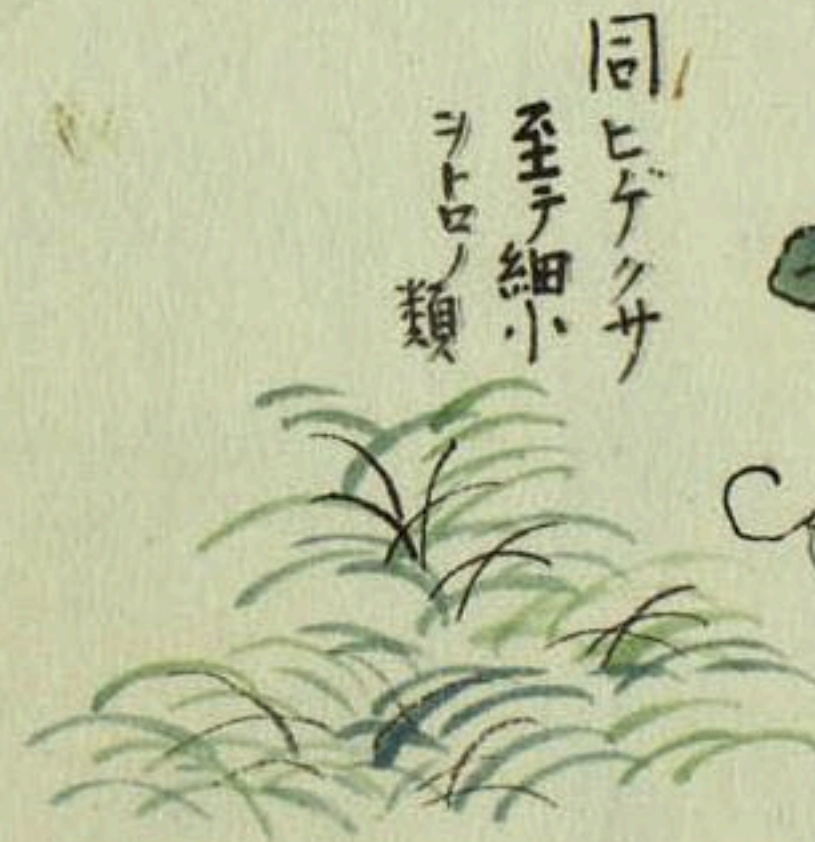 同ヒゲクサ
至テ細小
シトロノ類